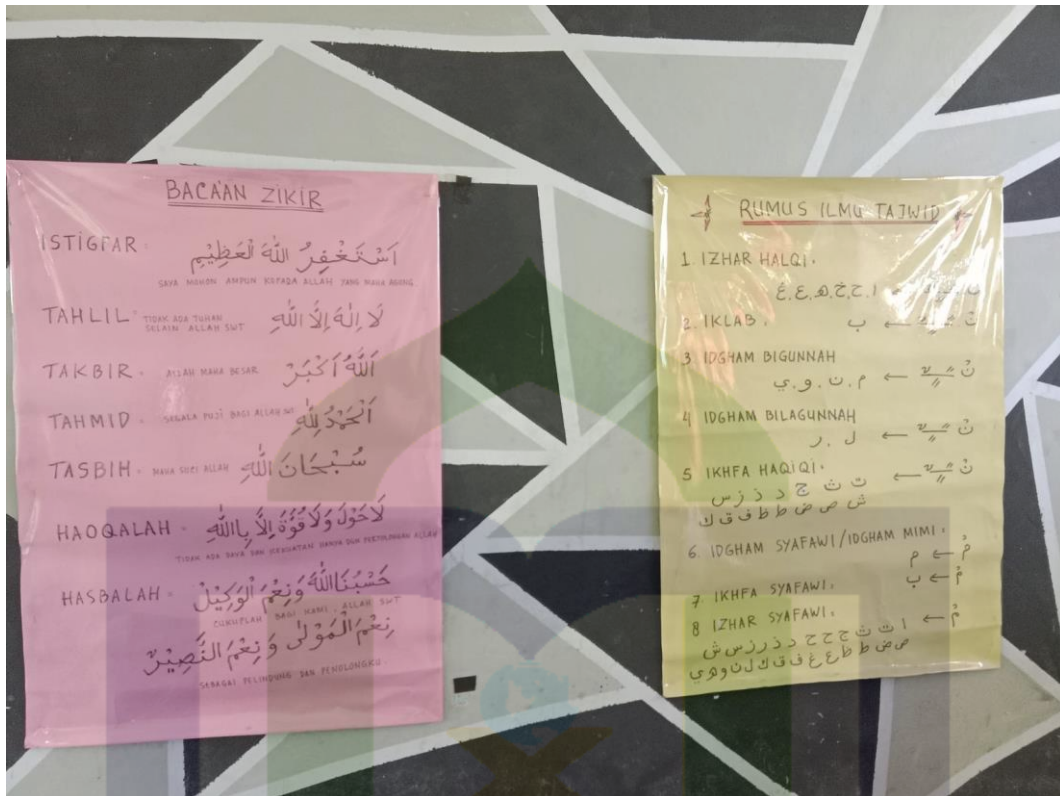 BACAAN ZIKIR
ISTIGFAR = اَسْتَغْفِرُ اللهَ الْعَظِيْمِ
SAYA MOHON AMPUN KEPADA ALLAH YANG MAHA AGUNG
TAHLIL = TIDAK ADA TUHAN SELAIN ALLAH SWT لَا اِلٰهَ اِلَّا اللهِ
TAKBIR = ALLAH MAHA BESAR اَللهُ اَكْبَرْ
TAHMID = SEGALA PUJI BAGI ALLAH SWT اَلْحَمْدُ لِلّٰهِ
TASBIH = MAHA SUCI ALLAH سُبْحَانَ اللهِ
HAOQALAH = لَاحَوْلَ وَلَاقُوَّةَ اِلَّا بِااللهِ
TIDAK ADA DAYA DAN KEKUATAN HANYA DGN PERTOLONGAN ALLAH
HASBALAH = حَسْبُنَااللهَ وَنِعْمَ الْوَكِيْلْ
CUKUPLAH BAGI KAMI, ALLAH SWT
نِعْمَ الْمَوْلٰى وَنِعْمَ النَّصِيْرْ
SEBAGAI PELINDUNG DAN PENOLONGKU
RUMUS ILMU TAJWID
1. IZHAR HALQI :
ا . ح . خ . ھ . ع . غ
2. IKLAB :
نْ ـًـٍـٌ ← ب
3. IDGHAM BIGUNNAH
نْ ـًـٍـٌ ← م . ن . و . ي
4 IDGHAM BILAGUNNAH
نْ ـًـٍـٌ ← ل . ر
5 IKHFA HAQIQI :
نْ ـًـٍـٌ ← ت ث ج د ذ ز س
ش ص ض ط ظ ف ق ك
6. IDGHAM SYAFAWI/IDGHAM MIMI :
مْ ← م
7. IKHFA SYAFAWI :
مْ ← ب
8 IZHAR SYAFAWI :
مْ ← ا ت ث ج ح خ د ذ ر ز س ش
ص ض ط ظ ع غ ف ق ك ل ن و ھ ي